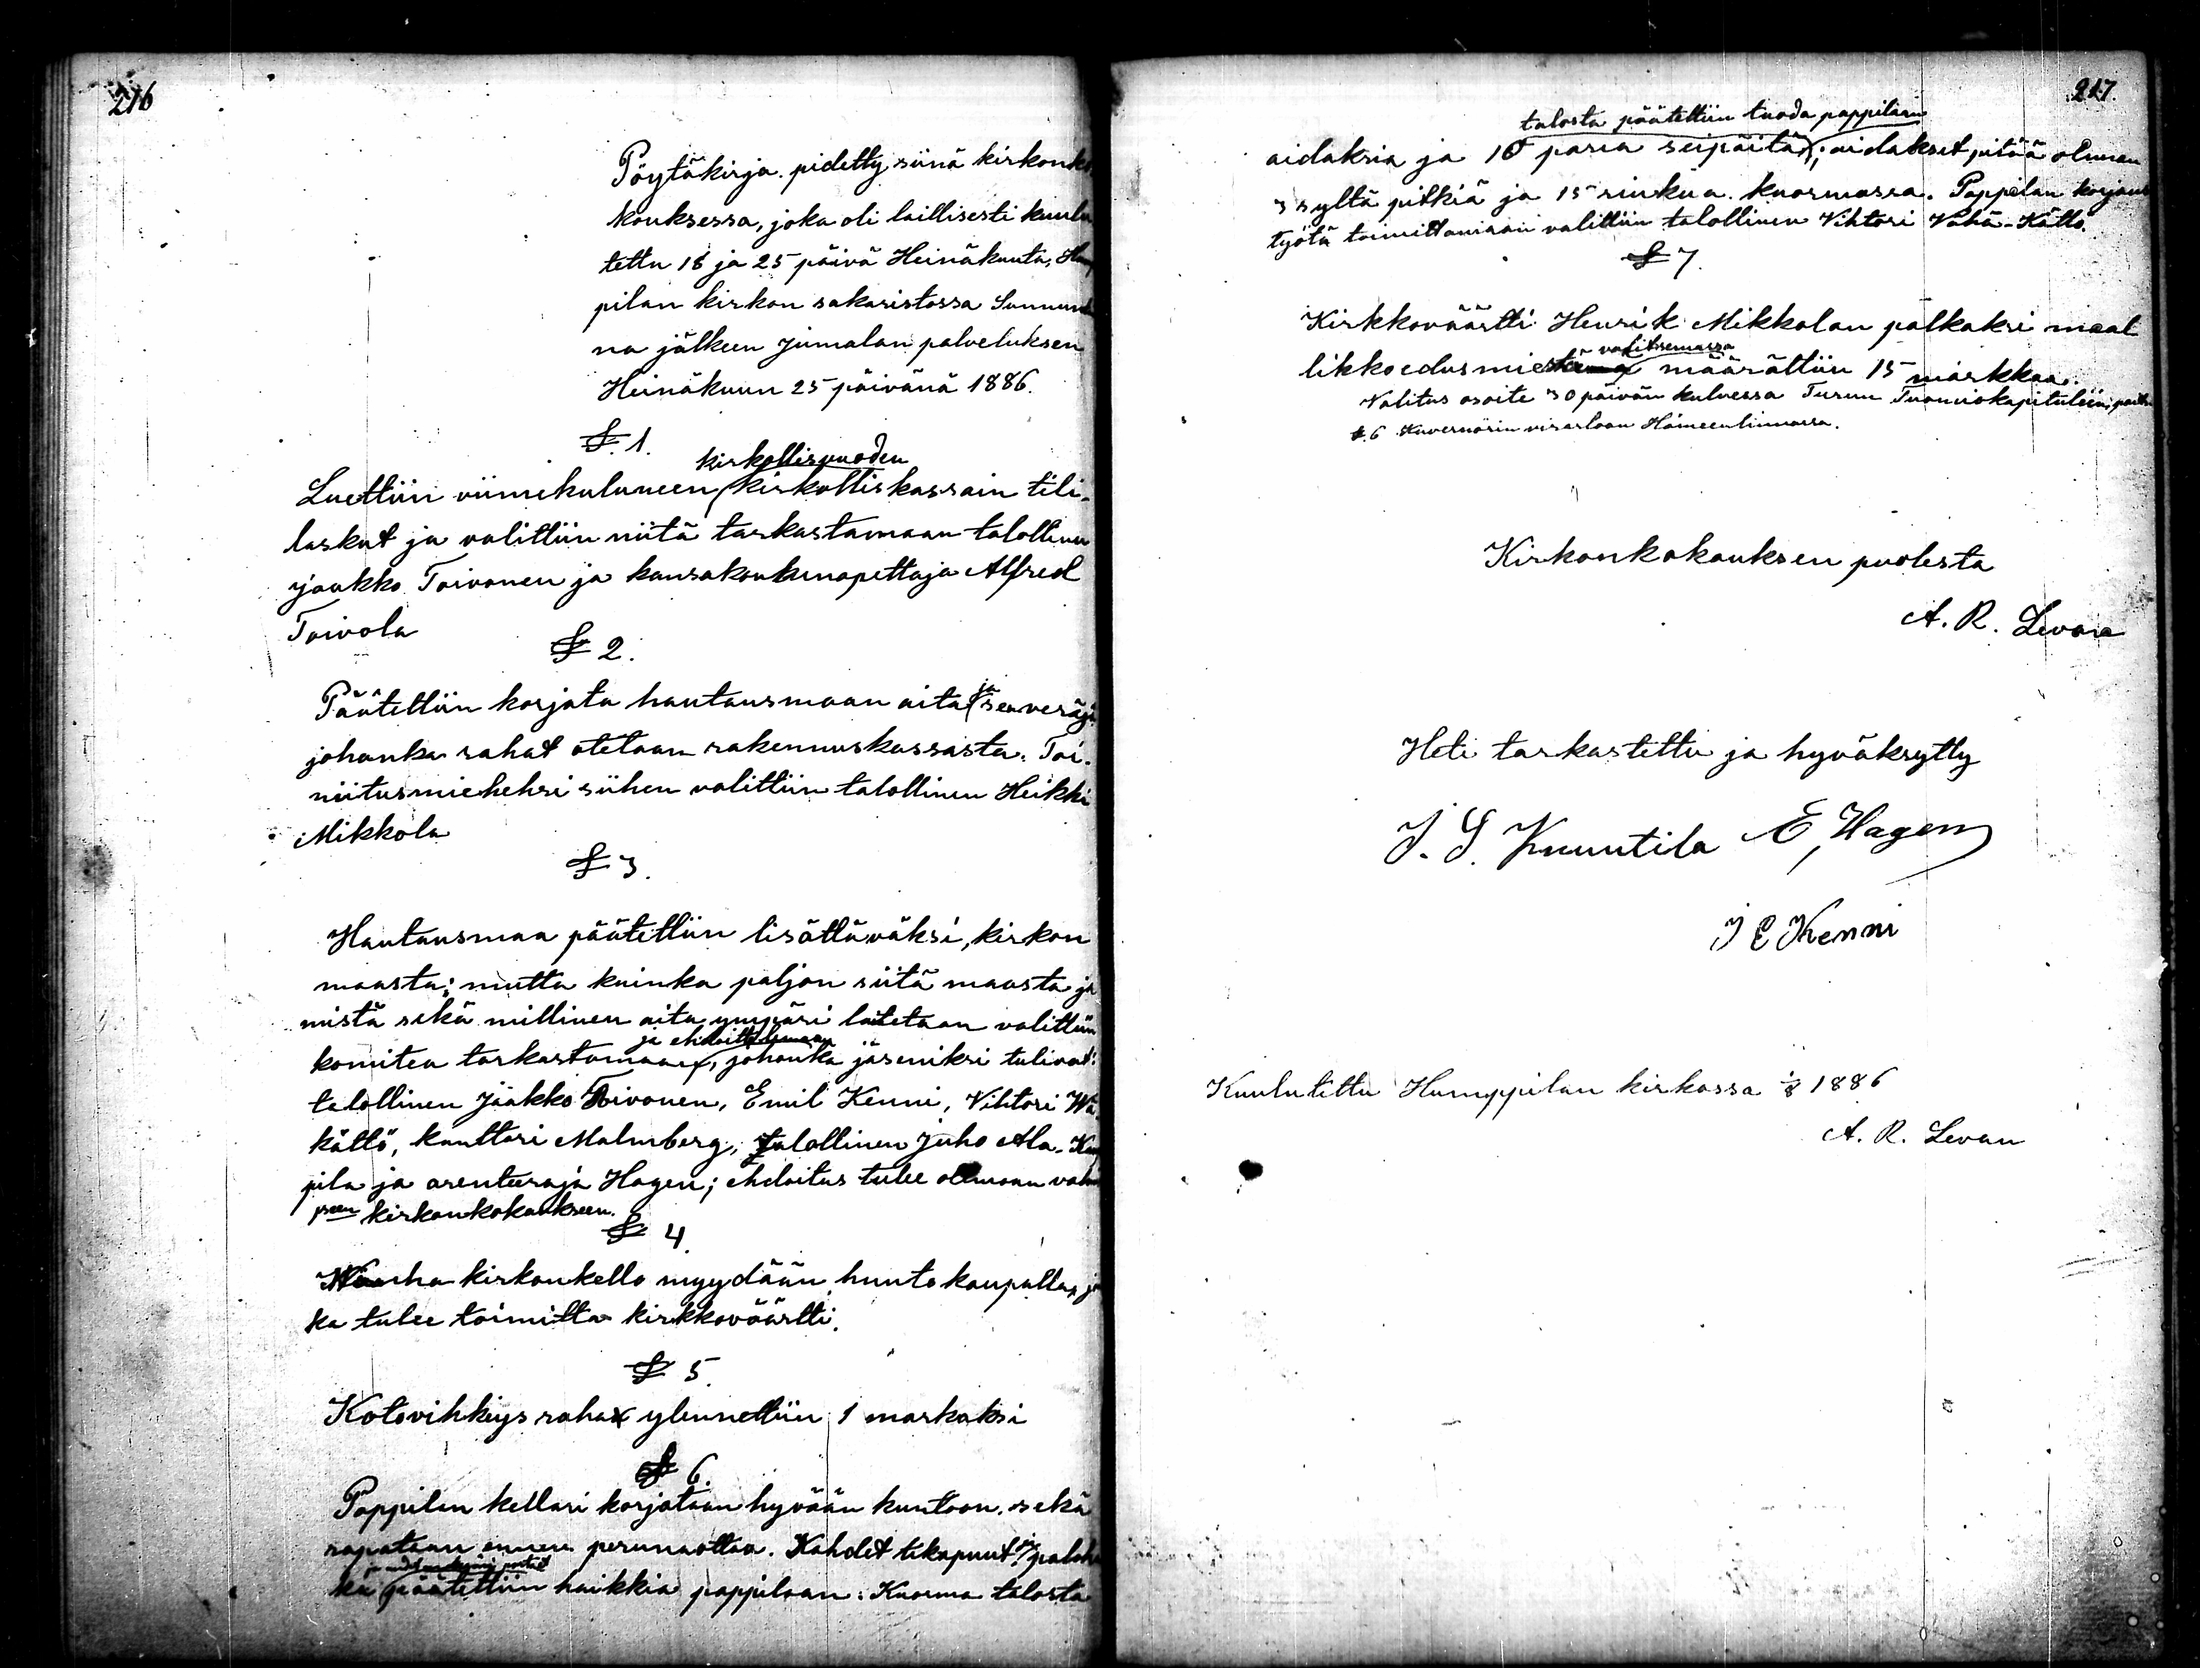 216
Pöytäkirja pidetty siinä kirkonko
kouksessa, joka oli laillisesti kuulu
tettu 18 ja 25 päivä Heinäkuuta, Hum
pilan kirkon sakaristossa Sunnun
na jälkeen jumalan palveluksen
Heinäkuun 25 päivänä 1886.
§. 1.
kirkollisvuoden
Luettiin viimekuluneen kirkolliskassain tili-
laskut ja valittiin niitä tarkastamaan talollinen
Jaakko Toivonen ja kansakoulunopettaja Alfred
Toivola
§ 2.
ja
Päätettiin korjata hautausmaan aita sen veräjä
johonka rahat otetaan rakennuskassasta. Toi-
mitusmieheksi siihen valittiin talollinen Heikki
Mikkola
§ 3.
Hautausmaa päätettiin lisättäväksi, kirkon
maasta; mutta kuinka paljon siitä maasta ja
mistä sekä millinen aita ympäri laitetaan valittiin
ja ehdoittelemaan
komitea tarkastamaan, johonka jäseniksi tulivat:
talollinen Jaakko Toivonen, Emil Kenni, Vihtori Wä
kättö, kanttori Malmberg, talollinen Juho Ala-Kup
pila ja arenteeraja Hagen; ehdoitus tulee ollemaan val
kirkonkokoukseen.
§ 4.
Wanha kirkonkello myydään huutokaupalla, jo
ka tulee toimitta kirkkoväärtti.
§ 5.
Kotovihkiys raha ylennettiin 1 markaksi
§ 6.
Pappilan kellari korjataan hyvään kuntoon sekä
rapataan ennen perunaottoa. Kahdet tikapuut ja paloha
ka päätettiin hankkia pappilaan. Kuorma talosta
217.
talosta päätettiin tuoda pappilaan
aidaksia ja 10 paria seipäitä; aidakset pitää oleman
3 syltä pitkiä ja 15 rinkua kuormassa. Pappilan korjaus
työtä toimittamaan valittiin talollinen Vihtori Vähä-Kättö.
§ 7.
Kirkkoväärtti Henrik Mikkolan palkaksi maal
valitsemassa
likkoedusmiestä määrättiin 15 markkaa.
Valitus osoite 30 päivän kuluessa Turun Tuomiokapituliin, paitsi
§. 6 Kuvernörin virastoon Hämeenlinnassa.
Kirkonkokouksen puolesta
A. R. Levan
Heti tarkastettu ja hyväksytty
J. G. Knuutila E, Hagen
J E Kenni
Kuulutettu Humppilan kirkossa 1/8 1886
A. R. Levan